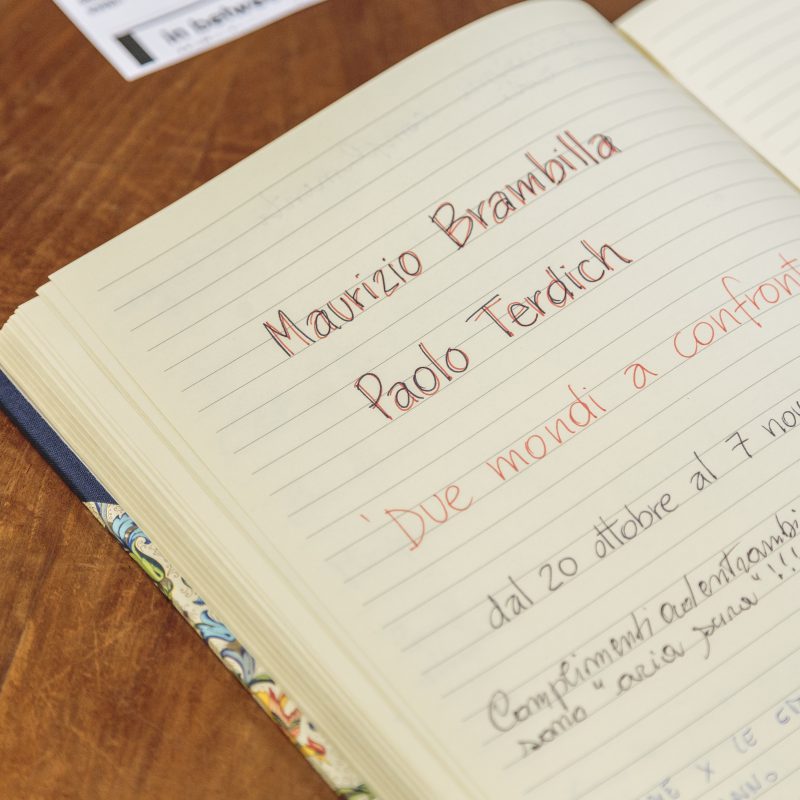 in betwee
Maurizio Brambilla
Paolo Terdich
'Due mondi a confront
dal 20 ottobre al 7 nov
Complimenti ad entrambi
sono "aria pura"!!!
X LE